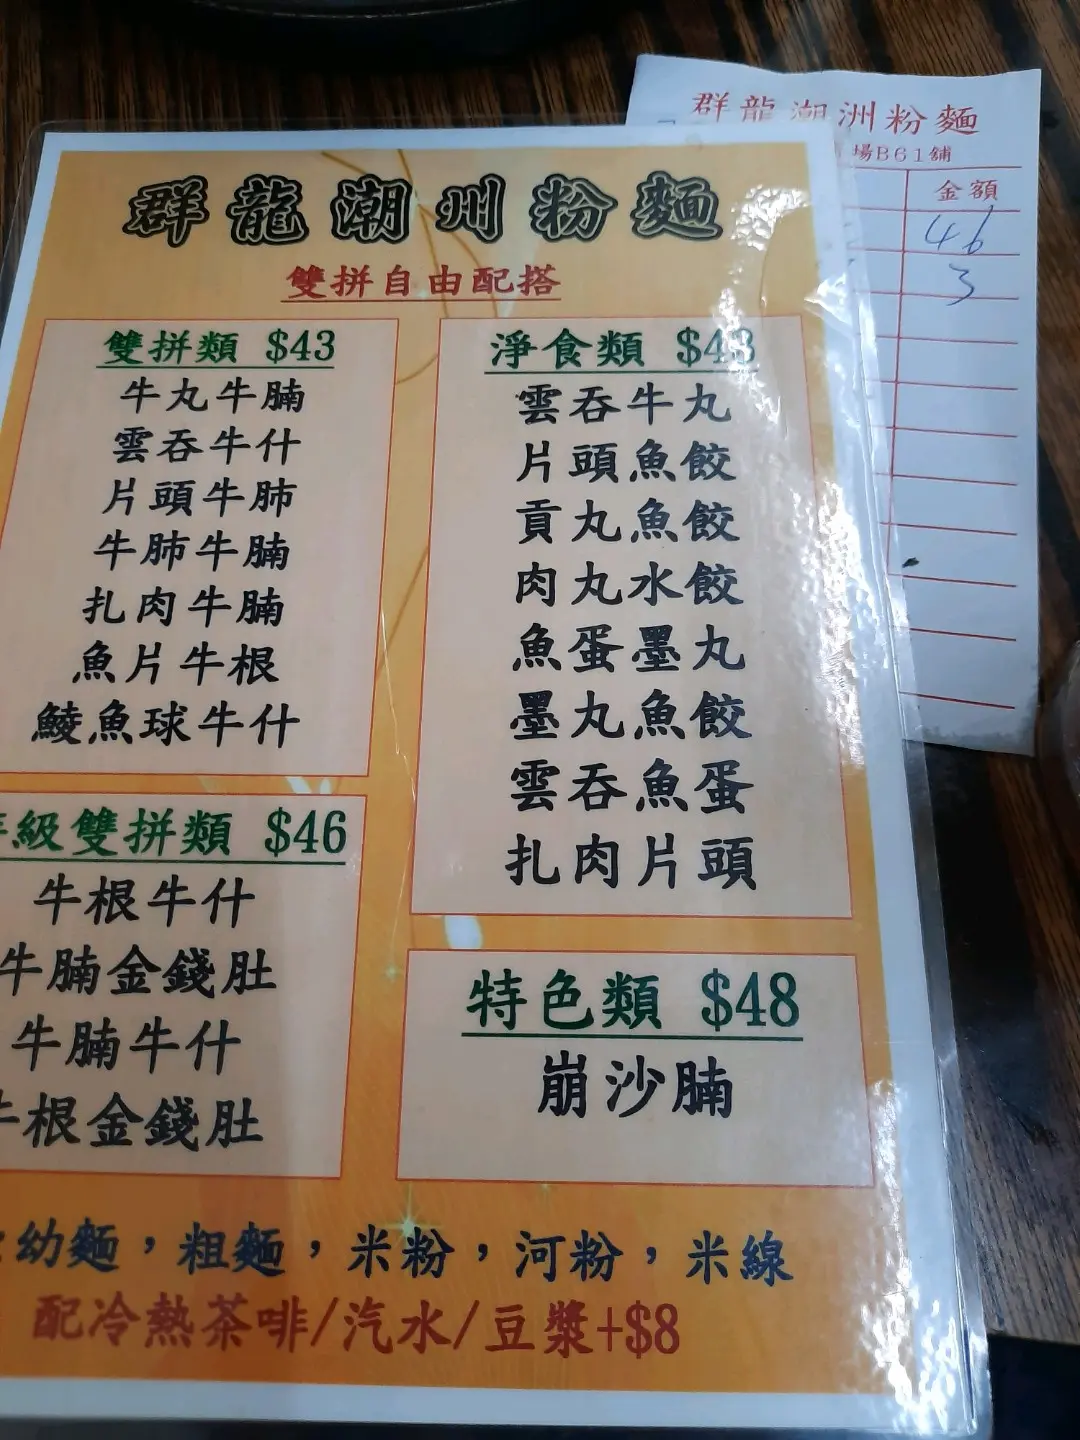 群龍潮州粉麵
雙拼自由配搭
雙拼類 $43
牛丸牛腩
雲吞牛什
片頭牛肺
牛肺牛腩
扎肉牛腩
魚片牛根
鯪魚球牛什
級雙拼類 $46
牛根牛什
牛腩金錢肚
牛腩牛什
牛根金錢肚
淨食類 $43
雲吞牛丸
片頭魚餃
貢丸魚餃
肉丸水餃
魚蛋墨丸
墨丸魚餃
雲吞魚蛋
扎肉片頭
特色類 $48
崩沙腩
幼麵，粗麵，米粉，河粉，米線
配冷熱茶啡/汽水/豆漿+$8
群龍潮洲粉麵
場B61舖
金額
46
3